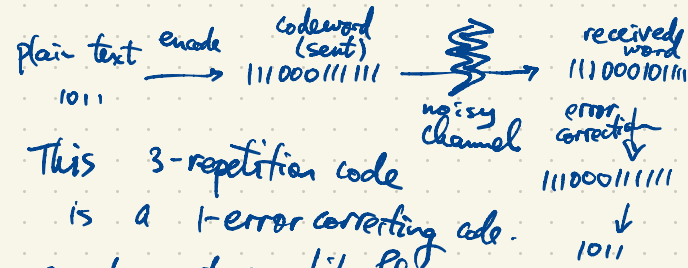 plain text
1011
encode
codeword
(sent)
111000111111
noisy
channel
received
word
111000101111
error
correction
111000111111
1011
This 3-repetition code
is a 1-error correcting code.